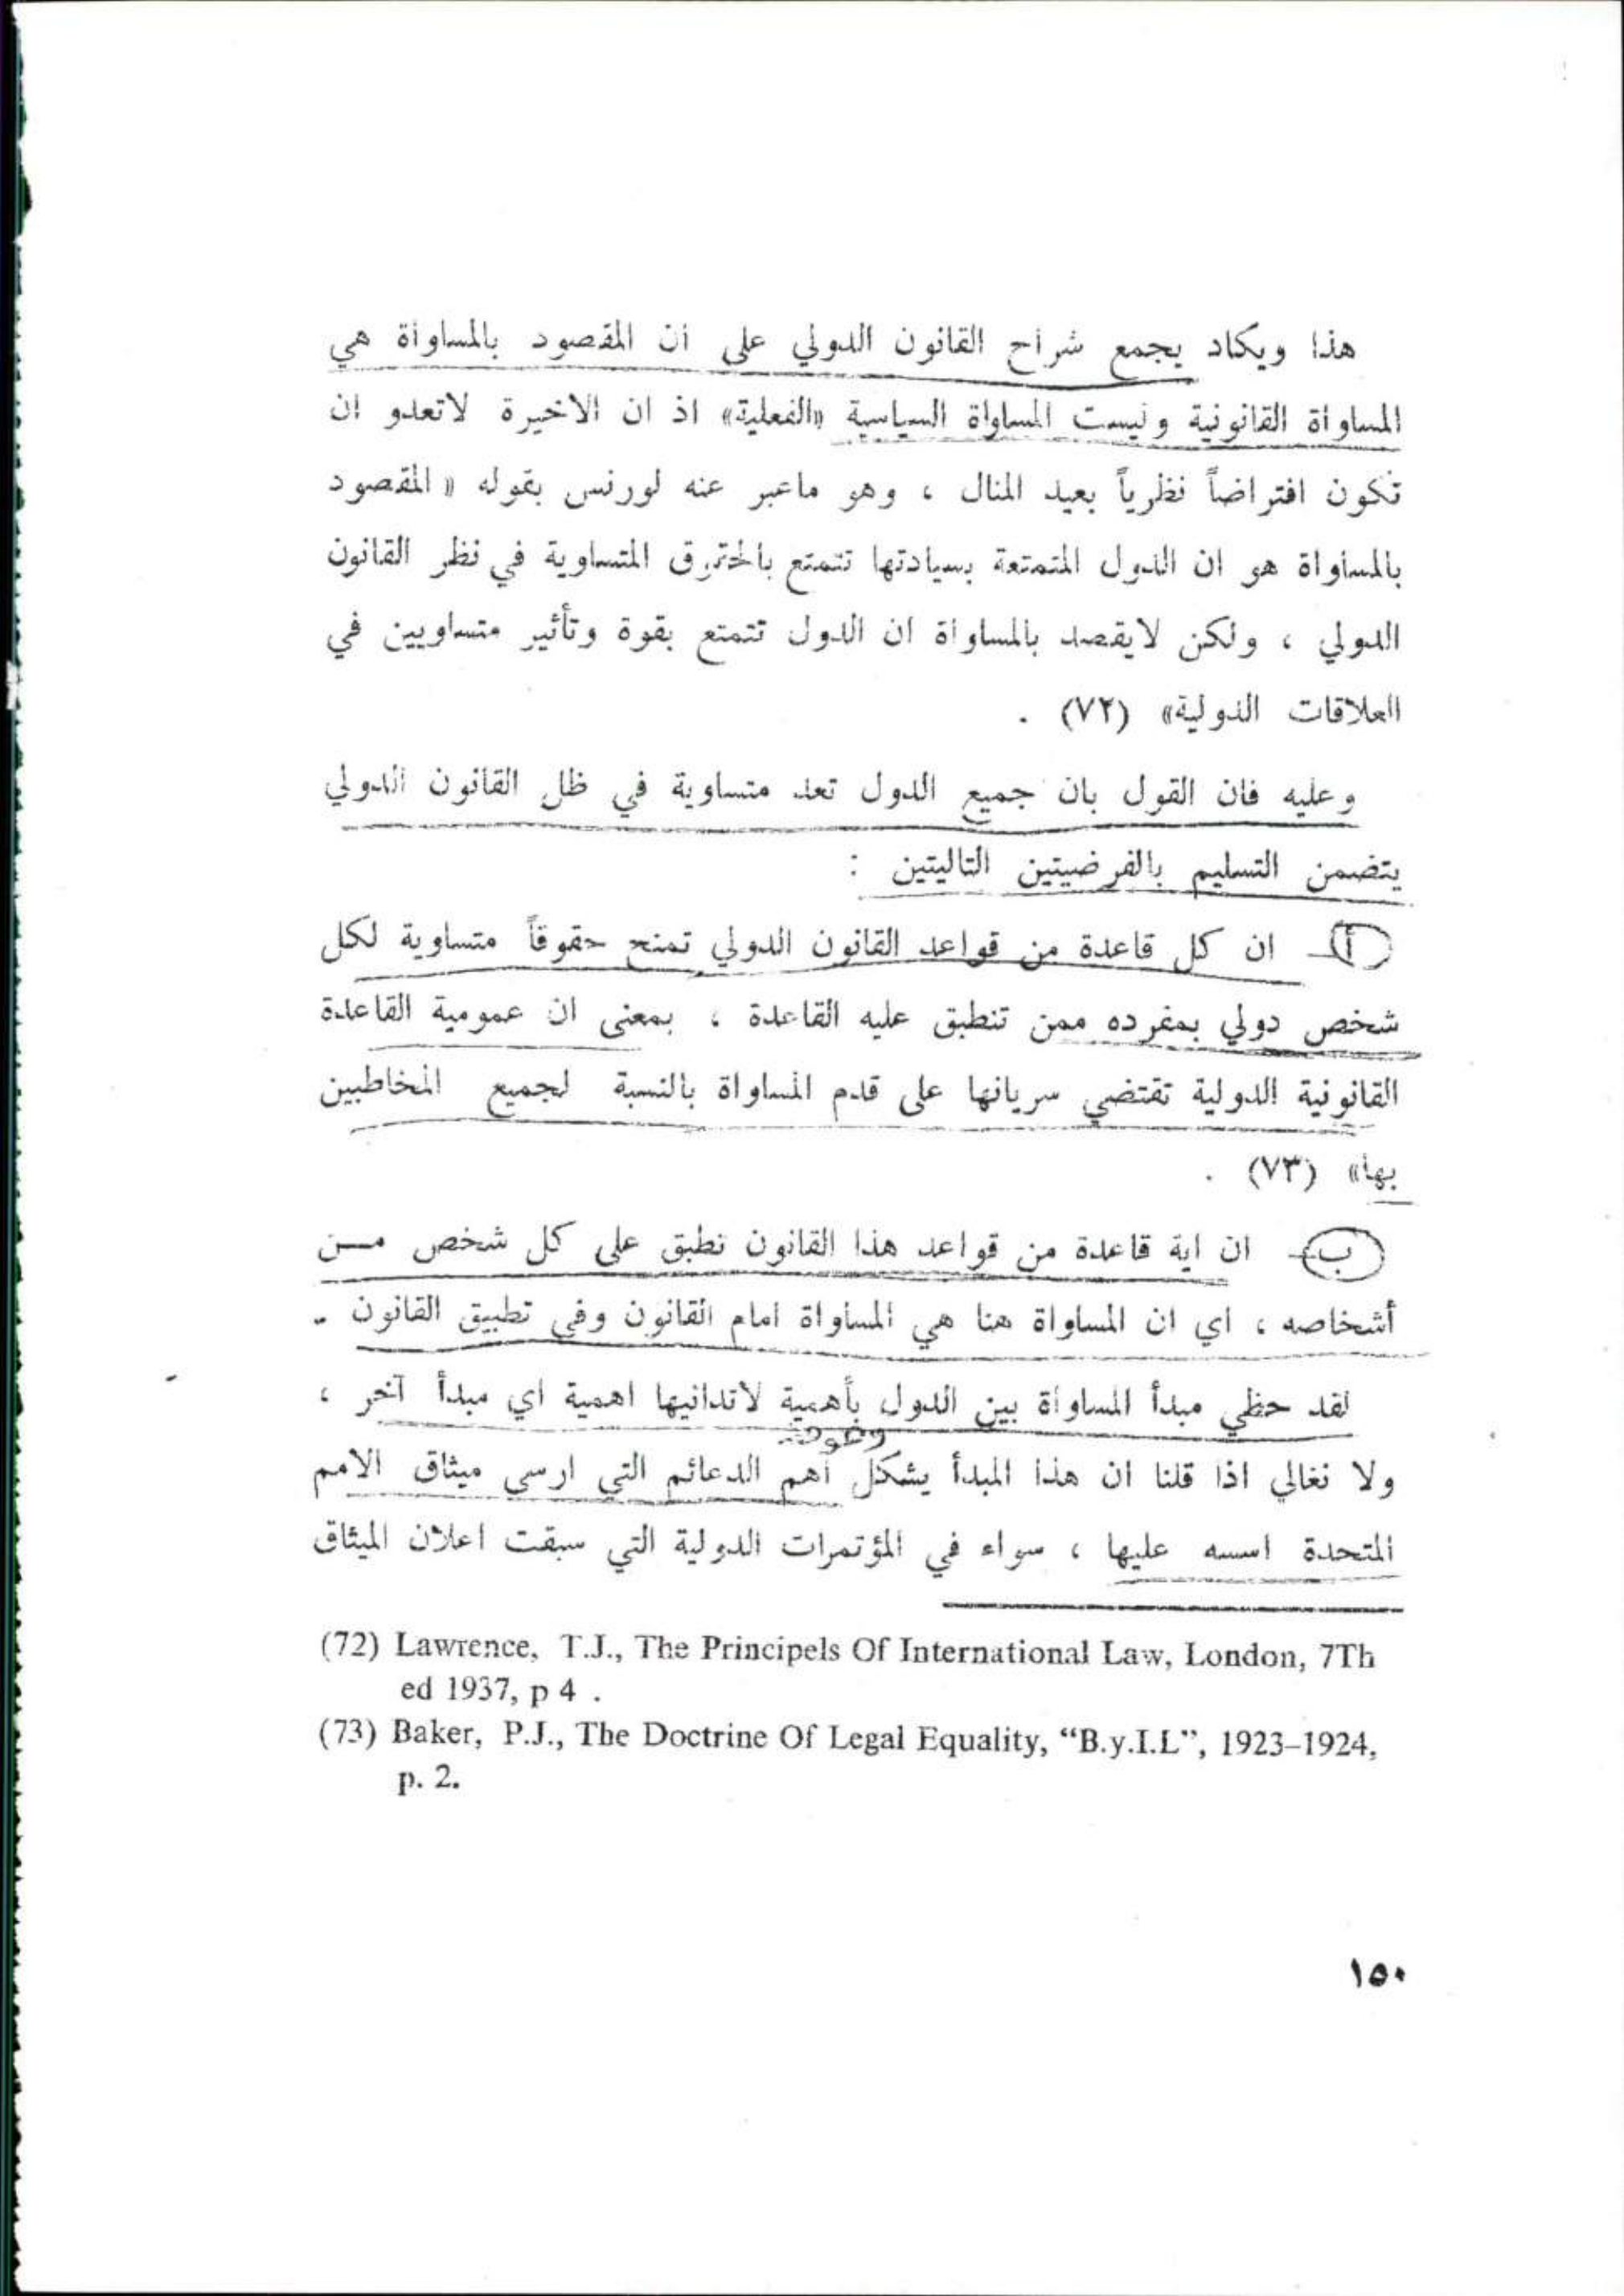 هذا ويكاد يجمع شراح القانون الدولي على ان المقصود بالمساواة هي
المساواة القانونية وليست المساواة السياسية «الفعلية» اذ ان الاخيرة لاتعدو ان
تكون افتراضاً نظرياً بعيد المنال ، وهو ماعبر عنه لورنس بقوله « المقصود
بالمساواة هو ان الدول المتمتعة بسيادتها تتمتع بالحقوق المتساوية في نظر القانون
الدولي ، ولكن لايقصد بالمساواة ان الدول تتمتع بقوة وتأثير متساويين في
العلاقات الدولية» (٧٢) .
وعليه فان القول بان جميع الدول تعد متساوية في ظل القانون الدولي
يتضمن التسليم بالفرضيتين التاليتين :
أ- ان كل قاعدة من قواعد القانون الدولي تمنح حقوقاً متساوية لكل
شخص دولي بمفرده ممن تنطبق عليه القاعدة ، بمعنى ان عمومية القاعدة
القانونية الدولية تقتضي سريانها على قدم المساواة بالنسبة لجميع المخاطبين
بها» (٧٣) .
ب- ان اية قاعدة من قواعد هذا القانون تطبق على كل شخص مــن
أشخاصه ، اي ان المساواة هنا هي المساواة امام القانون وفي تطبيق القانون .
لقد حظي مبدأ المساواة بين الدول بأهمية لاتدانيها اهمية اي مبدأ آخر ،
ولا نغالي اذا قلنا ان هذا المبدأ يشكل أهم الدعائم التي ارسى ميثاق الامم
المتحدة اسسه عليها ، سواء في المؤتمرات الدولية التي سبقت اعلان الميثاق
(72) Lawrence, T.J., The Principels Of International Law, London, 7Th
ed 1937, p 4 .
(73) Baker, P.J., The Doctrine Of Legal Equality, “B.y.I.L”, 1923–1924,
p. 2.
١٥٠